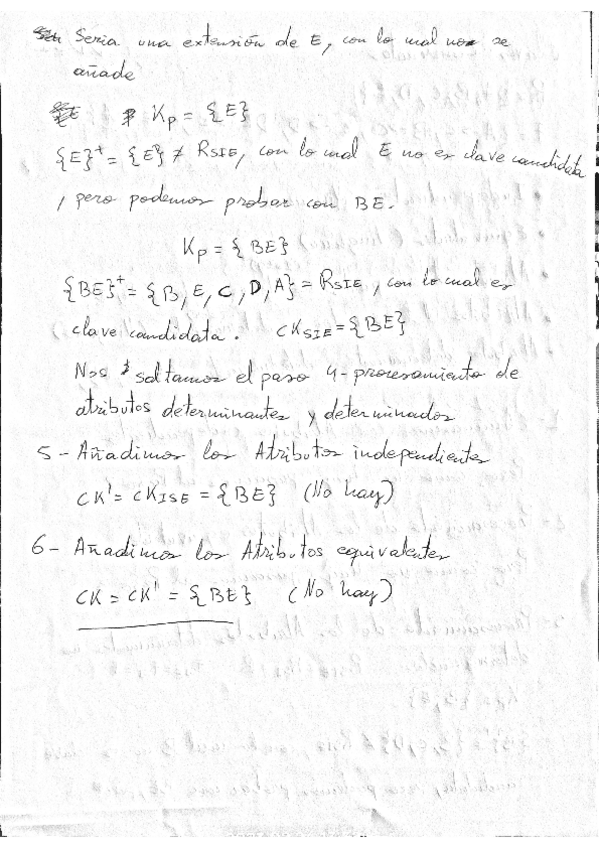 Seria una extensión de E, con lo cual no se
añade
Kp = {E}
{E}+ = {E} ≠ RSIE, con lo cual E no es clave candidata
, pero podemos probar con BE.
Kp = {BE}
{BE}+ = {B, E, C, D, A} = RSIE, con lo cual es
clave candidata. CKSIE = {BE}
Nos saltamos el paso 4-procesamiento de
atributos determinantes y determinados
5 - Añadimos los Atributos independientes
CK' = CKISE = {BE} (No hay)
6 - Añadimos los Atributos equivalentes
CK = CK' = {BE} (No hay)